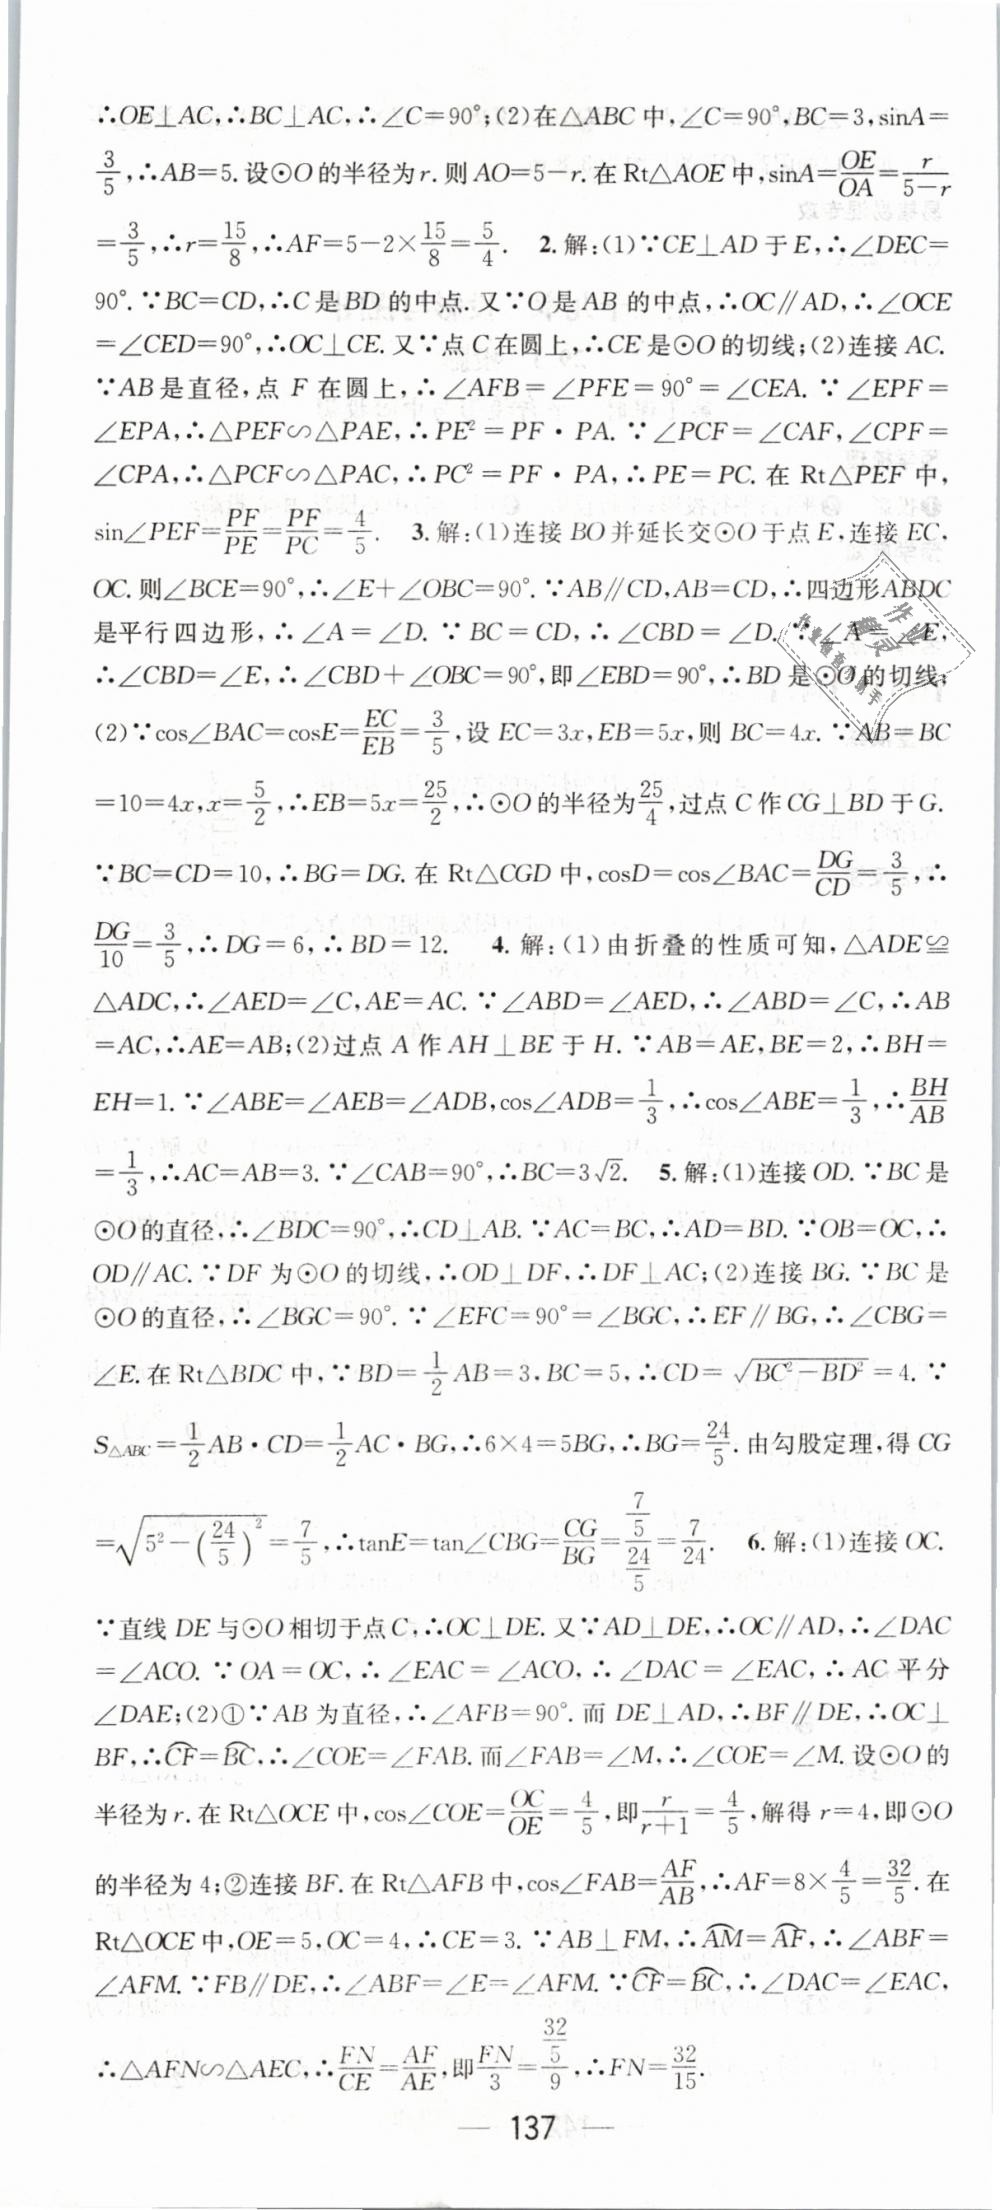 ∴OE⊥AC,∴BC⊥AC,∴∠C=90°;(2)在△ABC中,∠C=90°,BC=3,sinA=
3/5,∴AB=5.设⊙O的半径为r.则AO=5-r.在Rt△AOE中,sinA=OE/OA=r/(5-r)
=3/5,∴r=15/8,∴AF=5-2×15/8=5/4. 2.解:(1)∵CE⊥AD于E,∴∠DEC=
90°.∵BC=CD,∴C是BD的中点.又∵O是AB的中点,∴OC∥AD,∴∠OCE
=∠CED=90°,∴OC⊥CE.又∵点C在圆上,∴CE是⊙O的切线;(2)连接AC.
∵AB是直径,点F在圆上,∴∠AFB=∠PFE=90°=∠CEA.∵∠EPF=
∠EPA,∴△PEF∽△PAE,∴PE²=PF·PA.∵∠PCF=∠CAF,∠CPF=
∠CPA,∴△PCF∽△PAC,∴PC²=PF·PA,∴PE=PC.在Rt△PEF中,
sin∠PEF=PF/PE=PF/PC=4/5. 3.解:(1)连接BO并延长交⊙O于点E,连接EC,
OC.则∠BCE=90°,∴∠E+∠OBC=90°.∵AB∥CD,AB=CD,∴四边形ABDC
是平行四边形,∴∠A=∠D.∵BC=CD,∴∠CBD=∠D.∵∠A=∠E,
∴∠CBD=∠E,∴∠CBD+∠OBC=90°,即∠EBD=90°,∴BD是⊙O的切线;
(2)∵cos∠BAC=cosE=EC/EB=3/5,设EC=3x,EB=5x,则BC=4x.∵AB=BC
=10=4x,x=5/2,∴EB=5x=25/2,∴⊙O的半径为25/4,过点C作CG⊥BD于G.
∵BC=CD=10,∴BG=DG.在Rt△CGD中,cosD=cos∠BAC=DG/CD=3/5,∴
DG/10=3/5,∴DG=6,∴BD=12. 4.解:(1)由折叠的性质可知,△ADE≌
△ADC,∴∠AED=∠C,AE=AC.∵∠ABD=∠AED,∴∠ABD=∠C,∴AB
=AC,∴AE=AB;(2)过点A作AH⊥BE于H.∵AB=AE,BE=2,∴BH=
EH=1.∵∠ABE=∠AEB=∠ADB,cos∠ADB=1/3,∴cos∠ABE=1/3,∴BH/AB
=1/3,∴AC=AB=3.∵∠CAB=90°,∴BC=3√2. 5.解:(1)连接OD.∵BC是
⊙O的直径,∴∠BDC=90°,∴CD⊥AB.∵AC=BC,∴AD=BD.∵OB=OC,∴
OD∥AC.∵DF为⊙O的切线,∴OD⊥DF,∴DF⊥AC;(2)连接BG.∵BC是
⊙O的直径,∴∠BGC=90°.∵∠EFC=90°=∠BGC,∴EF∥BG,∴∠CBG=
∠E.在Rt△BDC中,∵BD=1/2AB=3,BC=5,∴CD=√(BC²-BD²)=4.∵
S△ABC=1/2AB·CD=1/2AC·BG,∴6×4=5BG,∴BG=24/5.由勾股定理,得CG
=√(5²-(24/5)²)=7/5,∴tanE=tan∠CBG=CG/BG=(7/5)/(24/5)=7/24. 6.解:(1)连接OC.
∵直线DE与⊙O相切于点C,∴OC⊥DE.又∵AD⊥DE,∴OC∥AD,∴∠DAC
=∠ACO.∵OA=OC,∴∠EAC=∠ACO,∴∠DAC=∠EAC,∴AC平分
∠DAE;(2)①∵AB为直径,∴∠AFB=90°.而DE⊥AD,∴BF∥DE,∴OC⊥
BF,∴C͡F=B͡C,∴∠COE=∠FAB.而∠FAB=∠M,∴∠COE=∠M.设⊙O的
半径为r.在Rt△OCE中,cos∠COE=OC/OE=4/5,即r/(r+1)=4/5,解得r=4,即⊙O
的半径为4;②连接BF.在Rt△AFB中,cos∠FAB=AF/AB,∴AF=8×4/5=32/5.在
Rt△OCE中,OE=5,OC=4,∴CE=3.∵AB⊥FM,∴A͡M=A͡F,∴∠ABF=
∠AFM.∵FB∥DE,∴∠ABF=∠E=∠AFM.∵C͡F=B͡C,∴∠DAC=∠EAC,
∴△AFN∽△AEC,∴FN/CE=AF/AE,即FN/3=(32/5)/9,∴FN=32/15.
— 137 —
作业
精灵
作业检查小助手